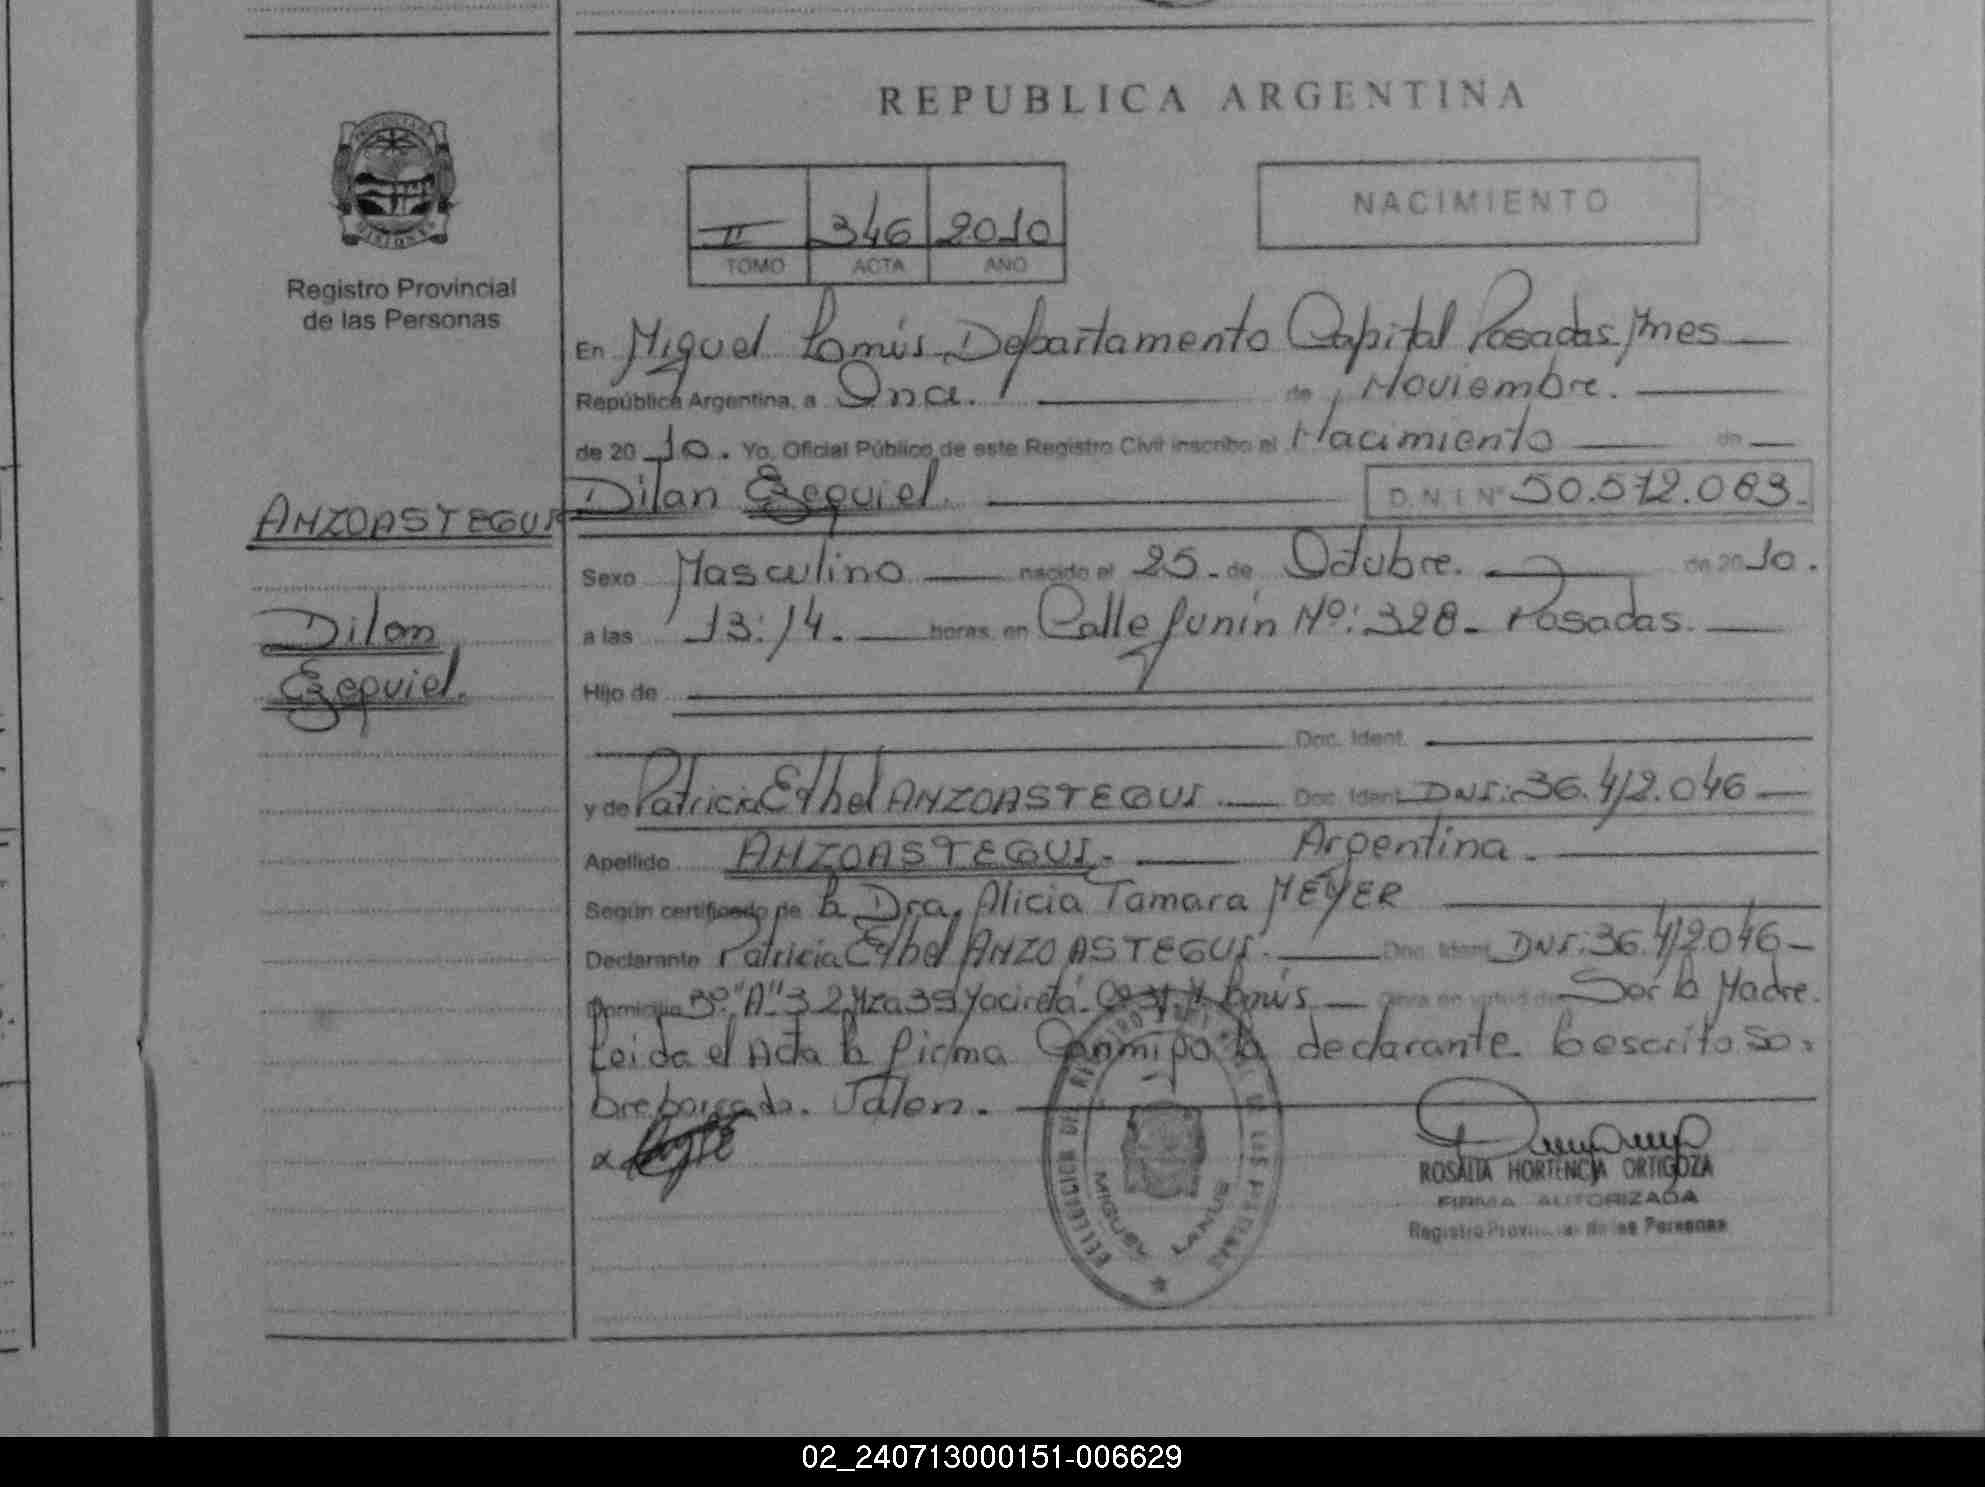 REPUBLICA ARGENTINA
Registro Provincial
de las Personas
II 346 2010
TOMO ACTA AÑO
NACIMIENTO
En Miguel Lanús Departamento Capital Posadas Mnes
República Argentina, a Once. de Noviembre.
de 20 10. Yo, Oficial Público de este Registro Civil inscribo el Nacimiento de
ANZOASTEGUI Dilan Ezequiel. D.N.I. Nº 50.572.083.
Dilan
Ezequiel.
Sexo Masculino nacido el 25. de Octubre. de 20 10.
a las 13:14. horas, en Calle Junín Nº: 328. Posadas.
Hijo de
Doc. Ident.
y de Patricia Ethel ANZOASTEGUI. Doc. Ident. DNI: 36.412.046
Apellido ANZOASTEGUI. Argentina.
Según certificado de la Dra. Alicia Tamara MEYER
Declarante Patricia Ethel ANZOASTEGUI. Doc. Ident. DNI: 36.412.046
Domicilio 3º "A" 32 Mza 39 Yaciretá. M. Lanús Obra en virtud de Ser la Madre.
Leida el Acta la firma Conmigo la declarante. lo escrito so.
breborrado. Valen.
REGISTRO
DE LAS PERSONAS
MIGUEL LANUS
ROSALIA HORTENCIA ORTIGOZA
FIRMA AUTORIZADA
Registro Provincial de las Personas
02_240713000151-006629